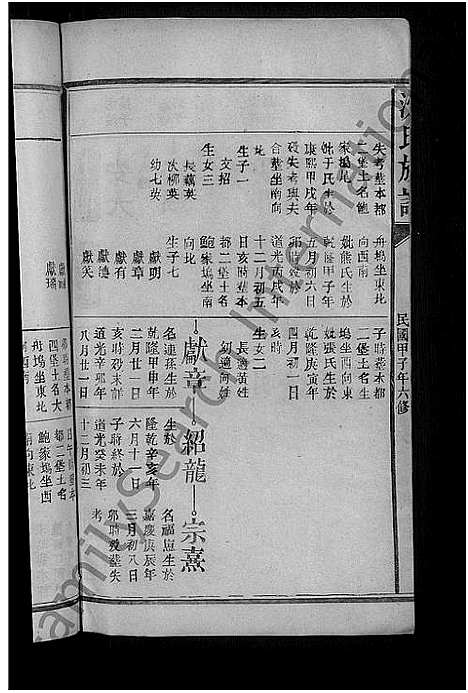 氏族譜
民國甲子年六修
失考葬本都
二堡土名鮑
家塢尾
妣于氏生於
康熙甲戌年
歿失考與夫
合葬坐南向
北
生子一
文招
生女三
長藕英
次柳英
幼七英
舟塢坐東北
向西南
妣熊氏生於
乾隆甲子年
五月初六日
卯時歿於
道光戊戌年
十二月初五
日亥時葬本
都二堡土名
鮑家塢坐南
向北
生子七
獻明
獻章
獻有
獻漣
獻矢
子時葬本都
二堡土名生
塢坐西向東
妣張氏生於
乾隆庚寅年
四月初一日
亥時
生女二
長適黃姓
幼適何姓
獻章
紹龍
宗熹
名連孫生於
乾隆甲申年
三月廿一日
亥時歿未詳
道光辛卯年
八月廿一日
生於
乾隆辛亥年
六月十一日
子時終於
道光癸未年
十二月初三
名福恩生於
嘉慶庚辰年
三月初八日
卯時歿葬失
考
四堡土名大
舟塢坐東北
都二堡土名
鮑家塢坐西
南向東北
FamilySearch International